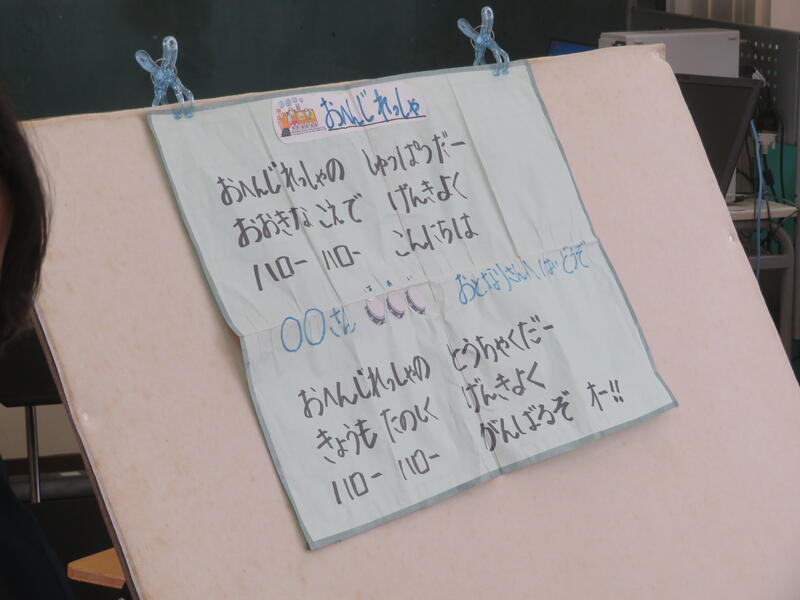 おへんじれっしゃ
おへんじれっしゃの しゅっぱつだー
おおきなこえで げんきよく
ハロー ハロー こんにちは
〇〇さん おとなりさんへ はいどうぞ
おへんじれっしゃの とうちゃくだー
きょうも たのしく げんきよく
ハロー ハロー がんばるぞ オー!!